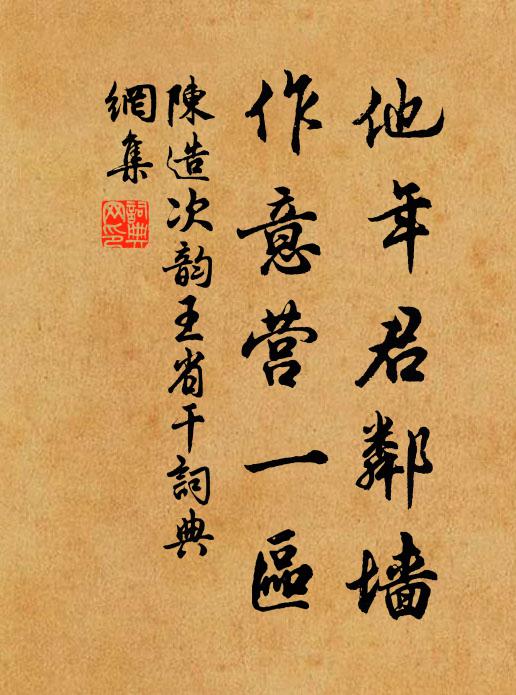 他年君鄰墻
作意营一區
陳造次韵王省干詞典
網集
詞典
网印